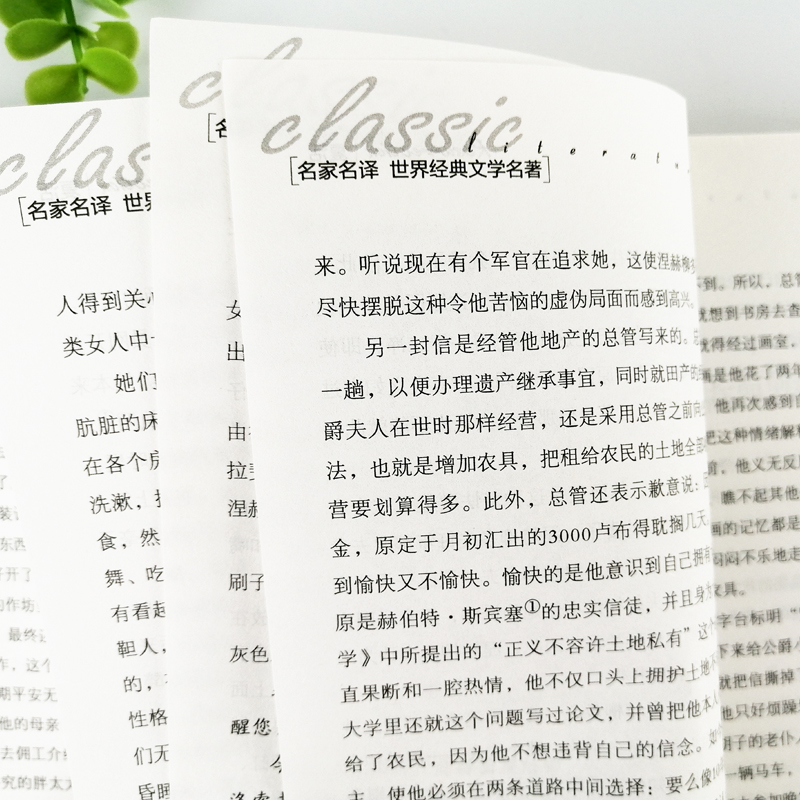 classic
literatu
[名家名译 世界经典文学名著]
来。听说现在有个军官在追求她，这使涅赫柳
尽快摆脱这种令他苦恼的虚伪局面而感到高兴。
另一封信是经管他地产的总管写来的。
一趟，以便办理遗产继承事宜，同时就田产的
爵夫人在世时那样经营，还是采用总管之前向
法，也就是增加农具，把租给农民的土地全部
营要划算得多。此外，总管还表示歉意说：
金，原定于月初汇出的3000卢布得耽搁几天
到愉快又不愉快。愉快的是他意识到自己拥有
原是赫伯特·斯宾塞①的忠实信徒，并且身为
学》中所提出的“正义不容许土地私有”这个
直果断和一腔热情，他不仅口头上拥护土地不
大学里还就这个问题写过论文，并曾把他本人
给了农民，因为他不想违背自己的信念。
主，使他必须在两条道路中间选择：要么像10
clas
[名家名译 世界
人得到关心
类女人中
她们
肮脏的床
在各个房
洗漱，
食，然
舞、吃
有看起
靼人，
的，
性格
们无
昏睡
c
[名
女
出
由
拉
涅赫
刷子
灰色
醒您
装
东西
开了
的作坊
最终
作，这个
期平安无
他的母亲
去佣工介
究的胖太
到。所以，总管
就想到书房去查
就得经过画室，
画是他花了两年
他再次感到自
把这种情绪解释
前，他义无反
瞧不起其他
画的记忆都是
闷闷不乐地走
家具。
字台标明“
下来给公爵小
就把信撕掉了
他只好烦躁
胡子的老仆人
一辆马车，